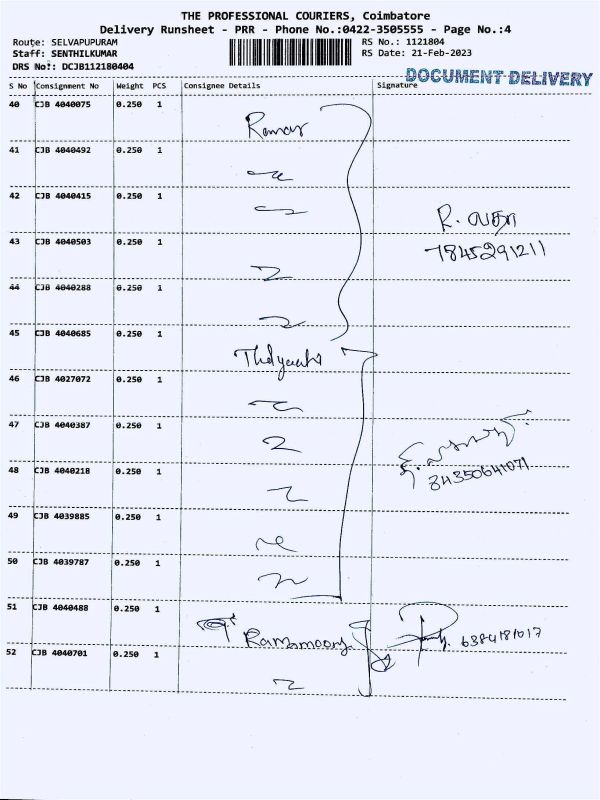 THE PROFESSIONAL COURIERS, Coimbatore
Delivery Runsheet - PRR - Phone No.:0422-3505555 - Page No.:4
Route: SELVAPUPURAM
RS No.: 1121804
Staff: SENTHILKUMAR
RS Date: 21-Feb-2023
DRS No!: DCJB112180404
DOCUMENT DELIVERY
S No Consignment No Weight PCS Consignee Details Signature
40 CJB 4040075 0.250 1
41 CJB 4040492 0.250 1
42 CJB 4040415 0.250 1
R.
43 CJB 4040503 0.250 1
7845291211
44 CJB 4040288 0.250 1
45 CJB 4040685 0.250 1
46 CJB 4027072 0.250 1
47 CJB 4040387 0.250 1
48 CJB 4040218 0.250 1
49 CJB 4039885 0.250 1
50 CJB 4039787 0.250 1
51 CJB 4040488 0.250 1
Ramamoorthy 6384181017
52 CJB 4040701 0.250 1